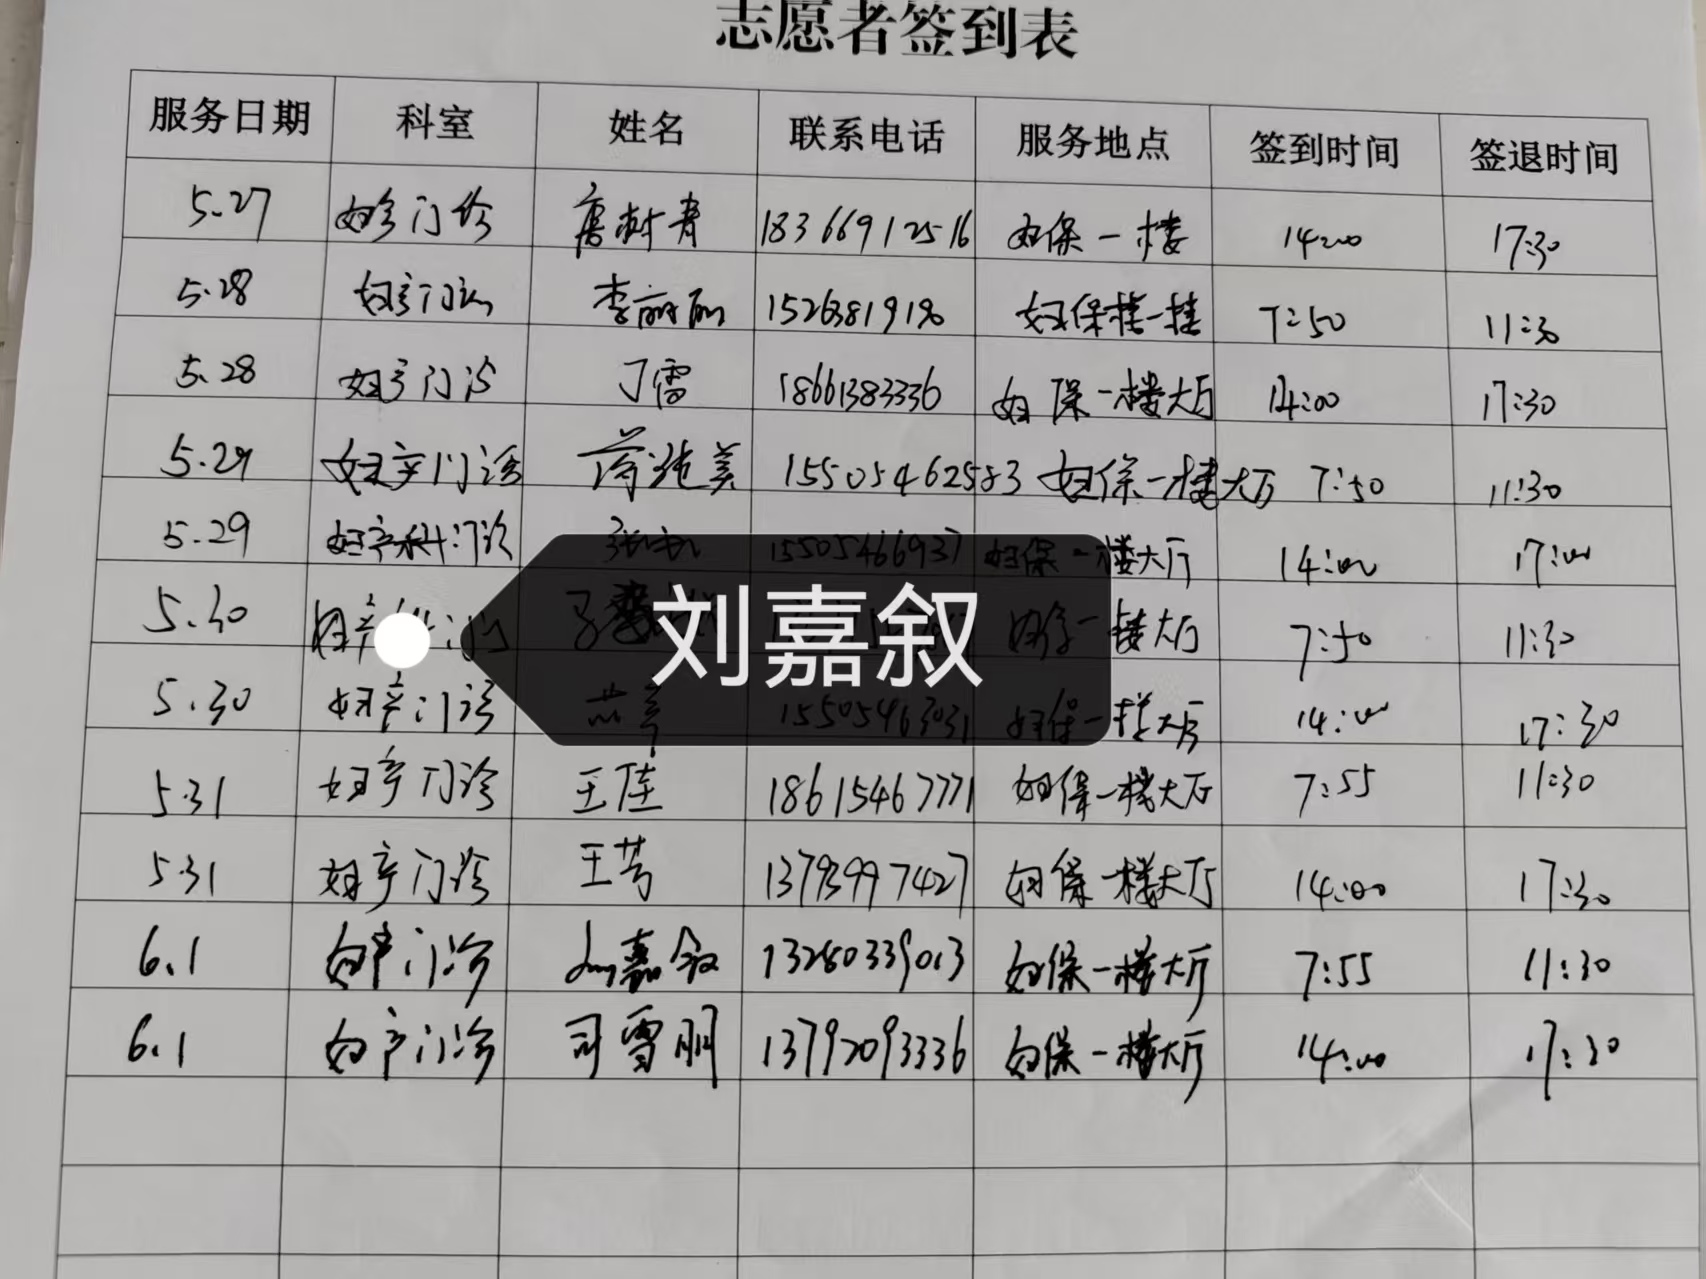 志愿者签到表
服务日期 科室 姓名 联系电话 服务地点 签到时间 签退时间
5.27 妇产门诊 唐树青 18366912516 妇保一楼 14:00 17:30
5.28 妇产门诊 李丽丽 妇保楼一楼 7:50 11:30
5.28 妇产门诊 丁雷 18661383336 妇保一楼大厅 14:00 17:30
5.29 妇产门诊 15505462583 妇保一楼大厅 7:50 11:30
5.29 妇产科门诊 15505466937 妇保一楼大厅 14:00 17:00
5.30 妇产科门诊 妇保一楼大厅 7:50 11:30
刘嘉叙
5.30 妇产门诊 15505463031 妇保一楼大厅 14:00 17:30
5.31 妇产门诊 王佳 18615467771 妇保一楼大厅 7:55 11:30
5.31 妇产门诊 王芳 13793997427 妇保一楼大厅 14:00 17:30
6.1 妇产门诊 刘嘉叙 13280339013 妇保一楼大厅 7:55 11:30
6.1 妇产门诊 司雪朋 13792093336 妇保一楼大厅 14:00 17:30